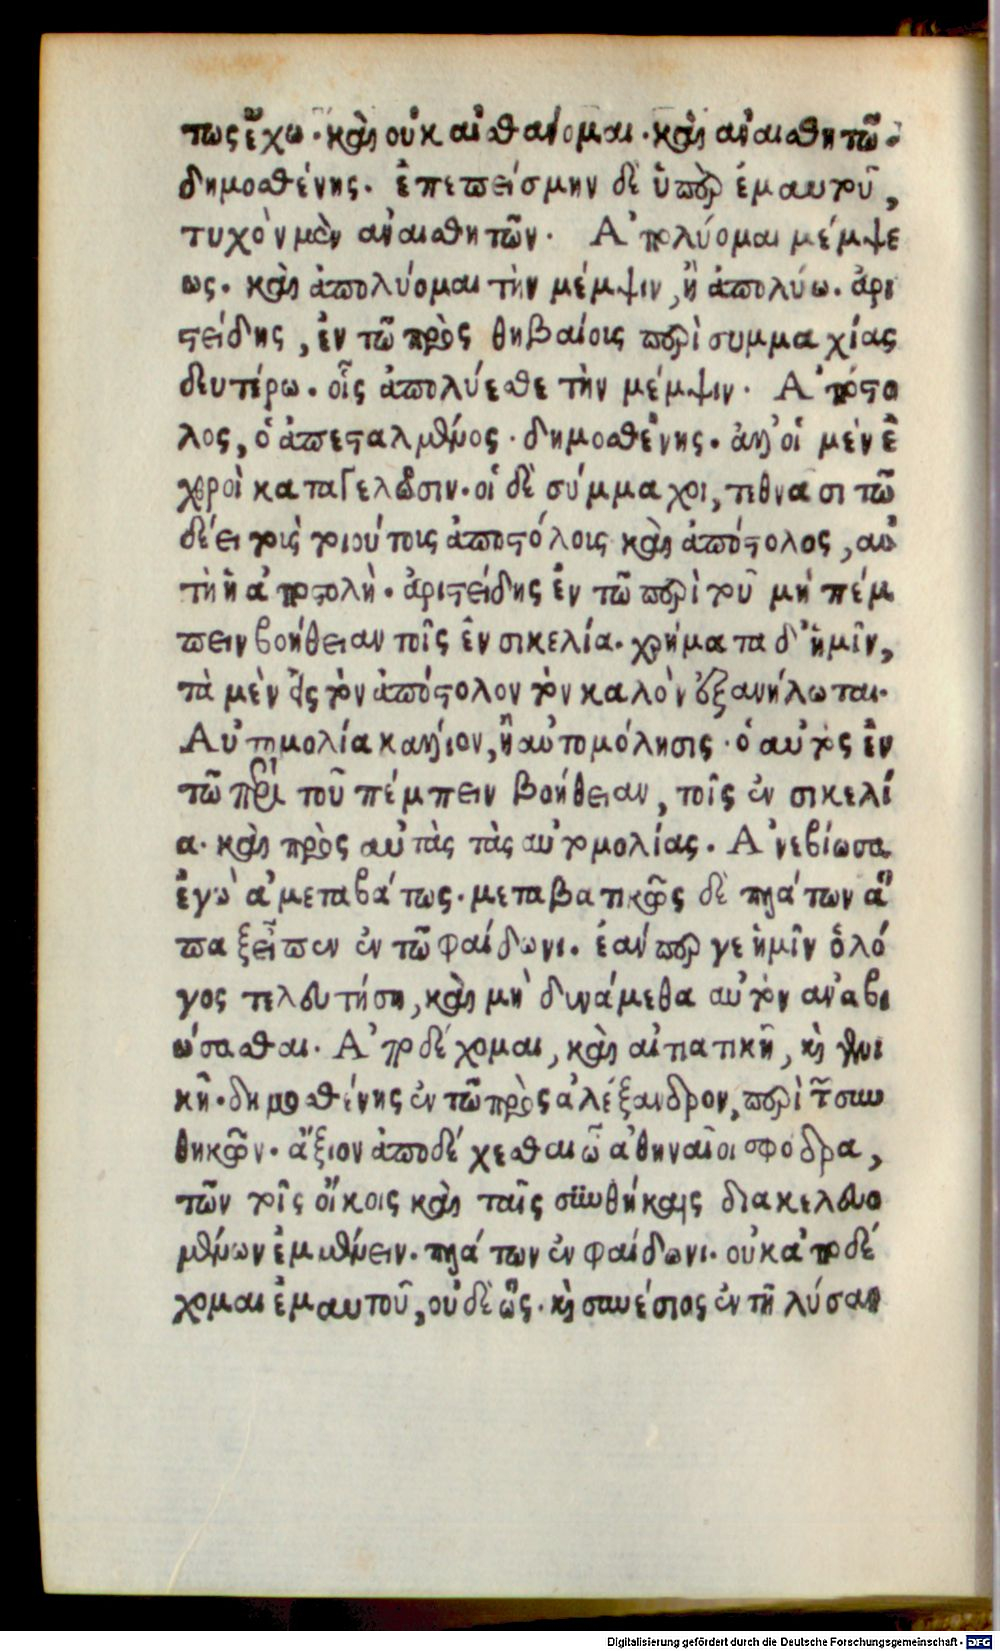 τως ἔχω. καὶ οὐκ αἰσθάνομαι. καὶ ἀναισθητῶ.
δημοσθένης. ἐπεπείσμην δὲ ὑπὲρ ἐμαυτοῦ,
τυχὸν μὲν ἀναισθητῶν. Ἀπολύομαι μέμψε
ως. καὶ ἀπολύομαι τὴν μέμψιν, ἢ ἀπολύω. ἀρι
στείδης, ἐν τῶ πρὸς θηβαίοις περὶ συμμαχίας
δευτέρω. οἷς ἀπολύεσθε τὴν μέμψιν. Ἀπόστο
λος, ὁ ἀπεσταλμένος. δημοσθένης. ἀντὶ οἱ μὲν ἐ
χθροὶ καταγελῶσιν. οἱ δὲ σύμμαχοι, τεθνᾶσι τῶ
δέει τοὺς τοιούτοις ἀποστόλοις καὶ ἀπόστολος, αὐ
τὴ ἡ ἀποστολὴ. ἀριστείδης ἐν τῶ περὶ τοῦ μὴ πέμ
πειν βοήθειαν τοῖς ἐν σικελία. χρήματα δ' ἡμῖν,
τὰ μὲν εἰς τὸν ἀπόστολον τὸν καλὸν ἐξανήλωται.
Αὐτομολία κάλλιον, ἢ αὐτομόλησις. ὁ αὐτὸς ἐν
τῶ περὶ τοῦ πέμπειν βοήθειαν, τοῖς ἐν σικελί
α. καὶ πρὸς αὐτὰς τὰς αὐτομολίας. Ἀνεβίωσα
ἐγὼ ἀμεταβάτως. μεταβατικῶς δὲ πλάτων ἅ
παξ εἶπεν ἐν τῶ φαίδωνι. ἐάν περ γε ἡμῖν ὁ λό
γος τελευτήση, καὶ μὴ δυνάμεθα αὐτὸν ἀναβι
ώσασθαι. Ἀποδέχομαι, καὶ αἰτιατικῆ, καὶ γενι
κῆ. δημοσθένης ἐν τῶ πρὸς ἀλέξανδρον, περὶ τῶν συν
θηκῶν. ἄξιον ἀποδέχεσθαι ὦ ἀθηναῖοι σφόδρα,
τῶν τοῖς ὅρκοις καὶ ταῖς συνθήκαις διακελευο
μένων ἐμμένειν. πλάτων ἐν φαίδωνι. οὐκ ἀποδέ
χομαι ἐμαυτοῦ, οὐδὲ ὡς. καὶ συνέσιος ἐν τῆ λύσαν
Digitalisierung gefördert durch die Deutsche Forschungsgemeinschaft - DFG